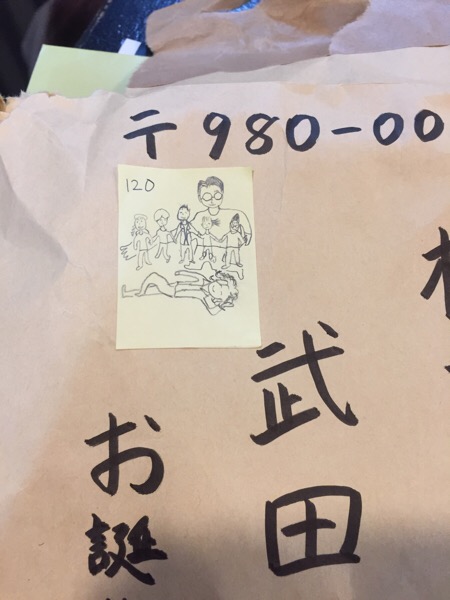 〒980-00
120
武田
お誕